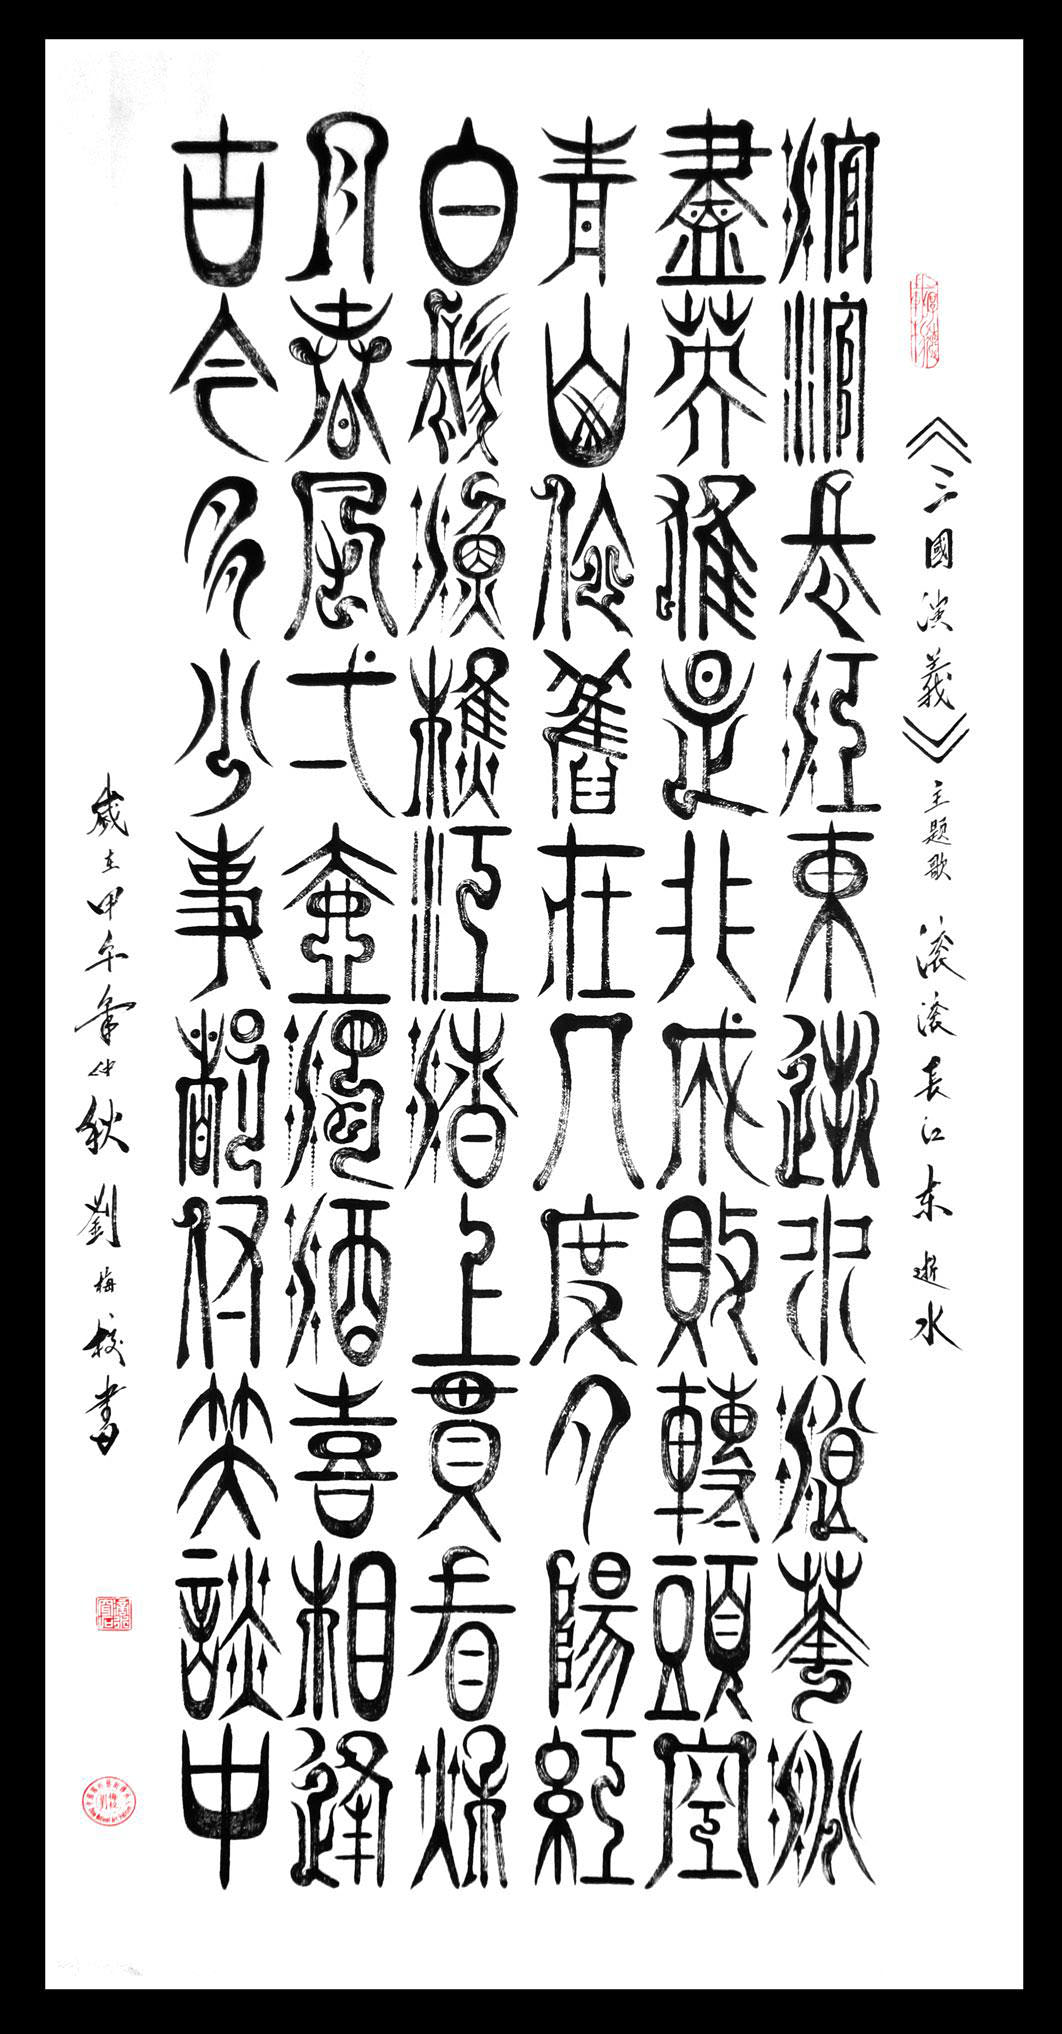 《三國演義》主题歌 滚滚長江东逝水
滾滾長江東逝水浪花淘
盡英雄是非成敗轉頭空
青山依舊在几度夕陽紅
白髮漁樵江渚上貫看秌
月春風弌壺濁酒喜相逢
古今多少事都付笑談中
歲在甲午年仲秋劉梅校書